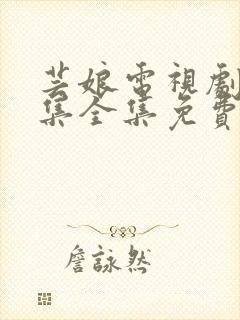 芸娘電視劇
集全集免費
詹詠然